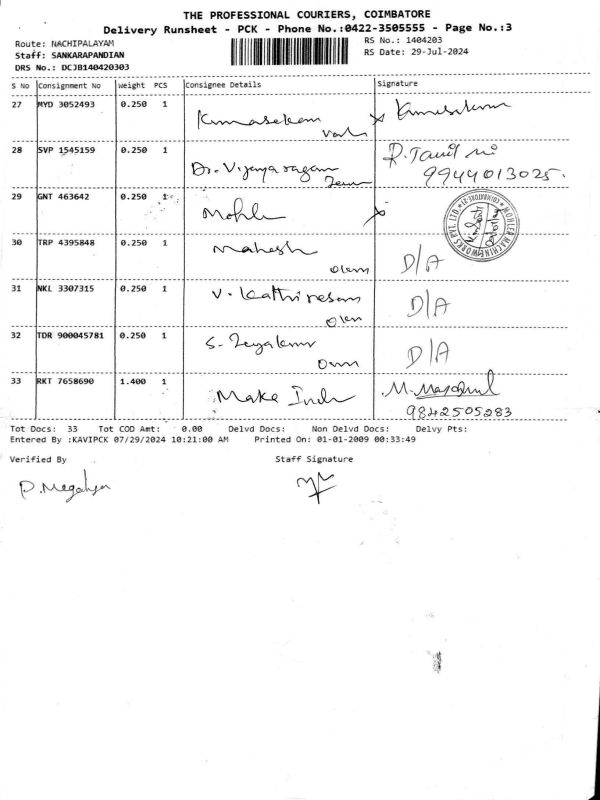 THE PROFESSIONAL COURIERS, COIMBATORE
Delivery Runsheet - PCK - Phone No.:0422-3505555 - Page No.:3
Route: NACHIPALAYAM
RS No.: 1404203
Staff: SANKARAPANDIAN
RS Date: 29-Jul-2024
DRS No.: DCJB140420303
S No Consignment No Weight PCS Consignee Details Signature
27 MYD 3052493 0.250 1
28 SVP 1545159 0.250 1 Dr. Vijayaragam
9944013025.
29 GNT 463642 0.250 1 Mohler
30 TRP 4395848 0.250 1 Mahesh D/A
31 NKL 3307315 0.250 1 V. Kathiresan D/A
32 TDR 900045781 0.250 1 S. D/A
33 RKT 7658690 1.400 1 Make M.
9842505283
Tot Docs: 33 Tot COD Amt: 0.00 Delvd Docs: Non Delvd Docs: Delvy Pts:
Entered By :KAVIPCK 07/29/2024 10:21:00 AM Printed On: 01-01-2009 00:33:49
Verified By Staff Signature